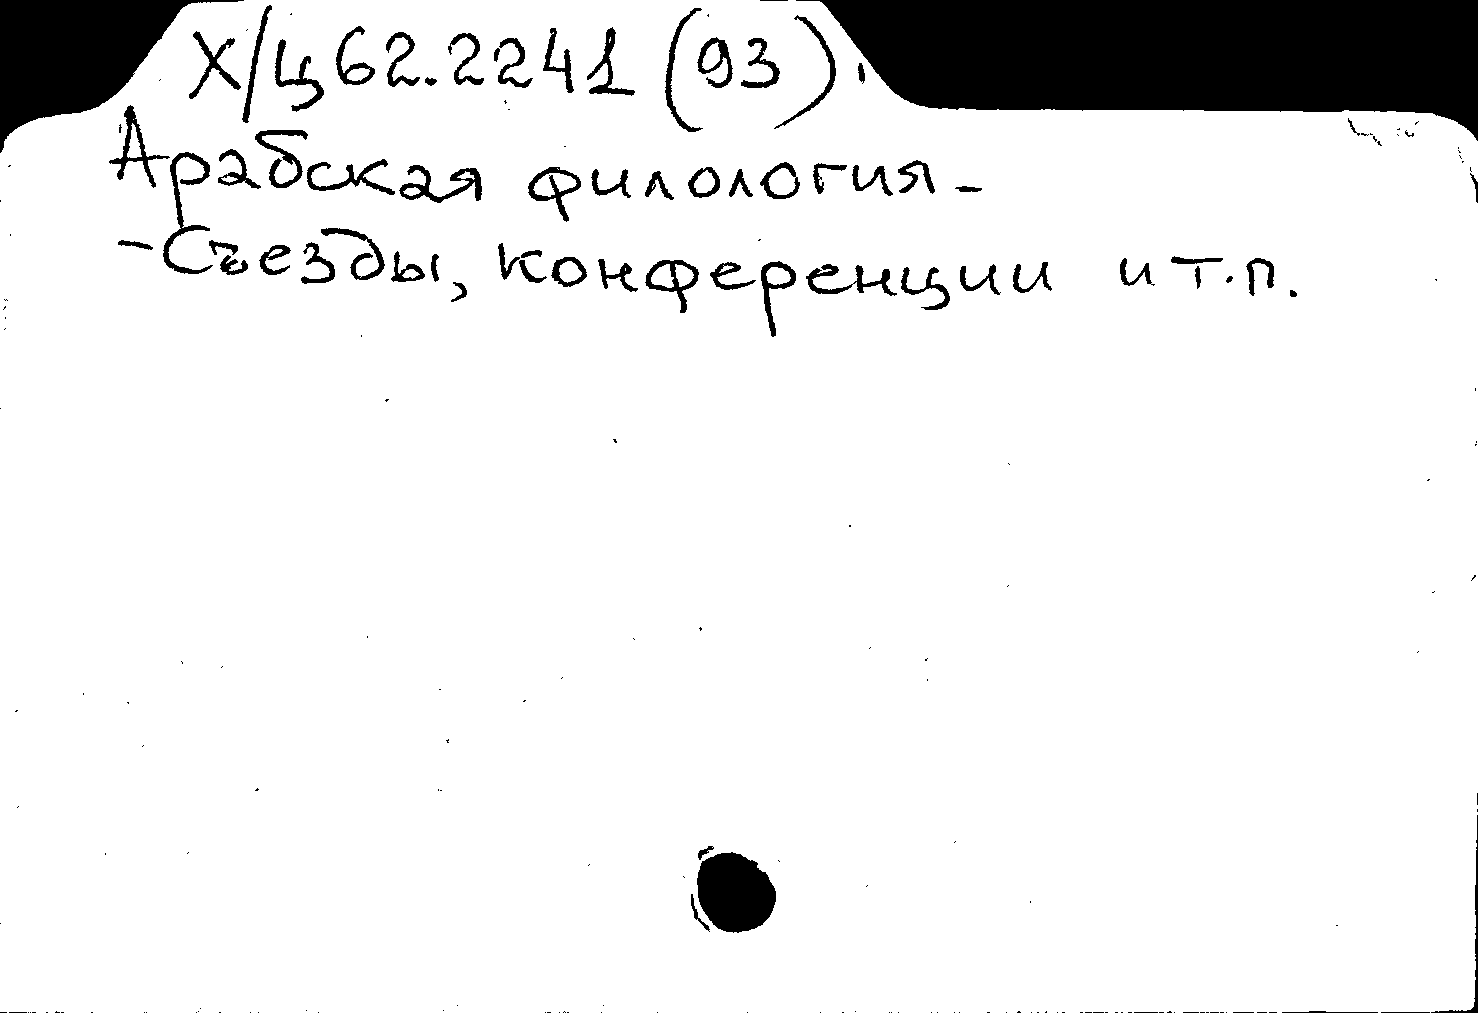 Х/ц62.2241 (93).
Арабская филология-
-Съезды, конференции и т.п.